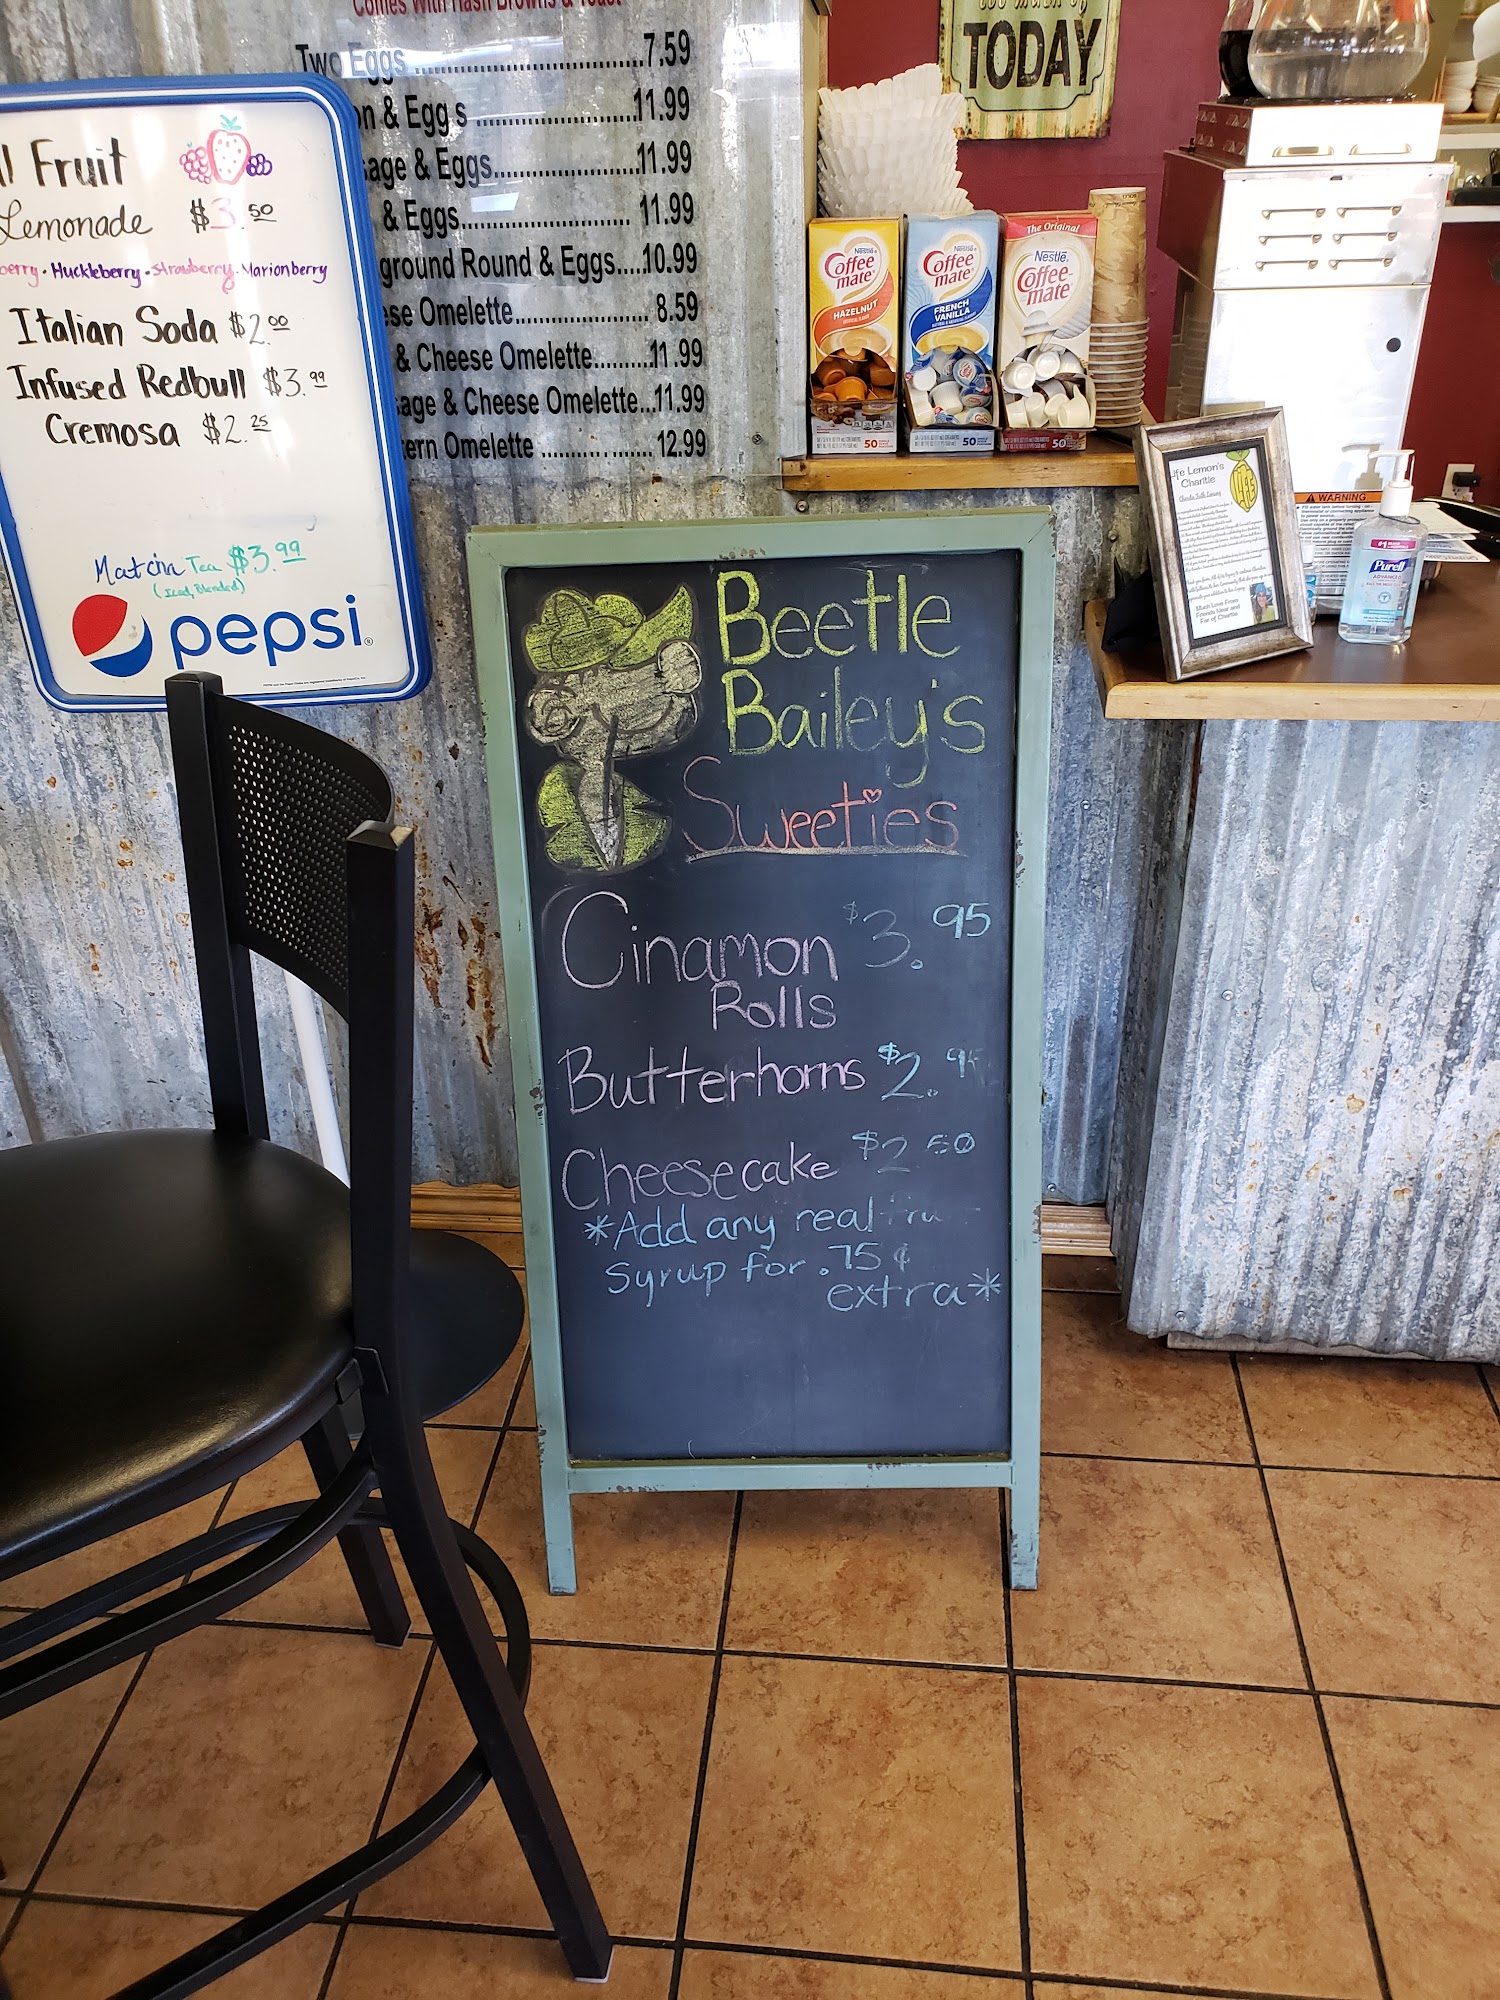 Comes With Hash Browns & Toast
Two Eggs 7.59
& Eggs 11.99
& Eggs 11.99
& Eggs 11.99
Round & Eggs 10.99
Omelette 8.59
& Cheese Omelette 11.99
& Cheese Omelette 11.99
Omelette 12.99
Fruit
Lemonade $3.50
Huckleberry · Strawberry · Marionberry
Italian Soda $2.00
Infused Redbull $3.99
Cremosa $2.25
Matcha Tea $3.99
(Iced, Blended)
pepsi
TODAY
Nestle
Coffee mate
HAZELNUT
50
Nestle
Coffee mate
FRENCH
VANILLA
50
The Original
Nestle
Coffee-mate
50
Life Lemon's
Charitie
Much Love From
Friends Near and
Far of Charitie
WARNING
Purell
ADVANCED
Beetle
Bailey's
Sweeties
Cinamon $3.95
Rolls
Butterhorns $2.95
Cheesecake $2.50
*Add any real
syrup for .75¢
extra*